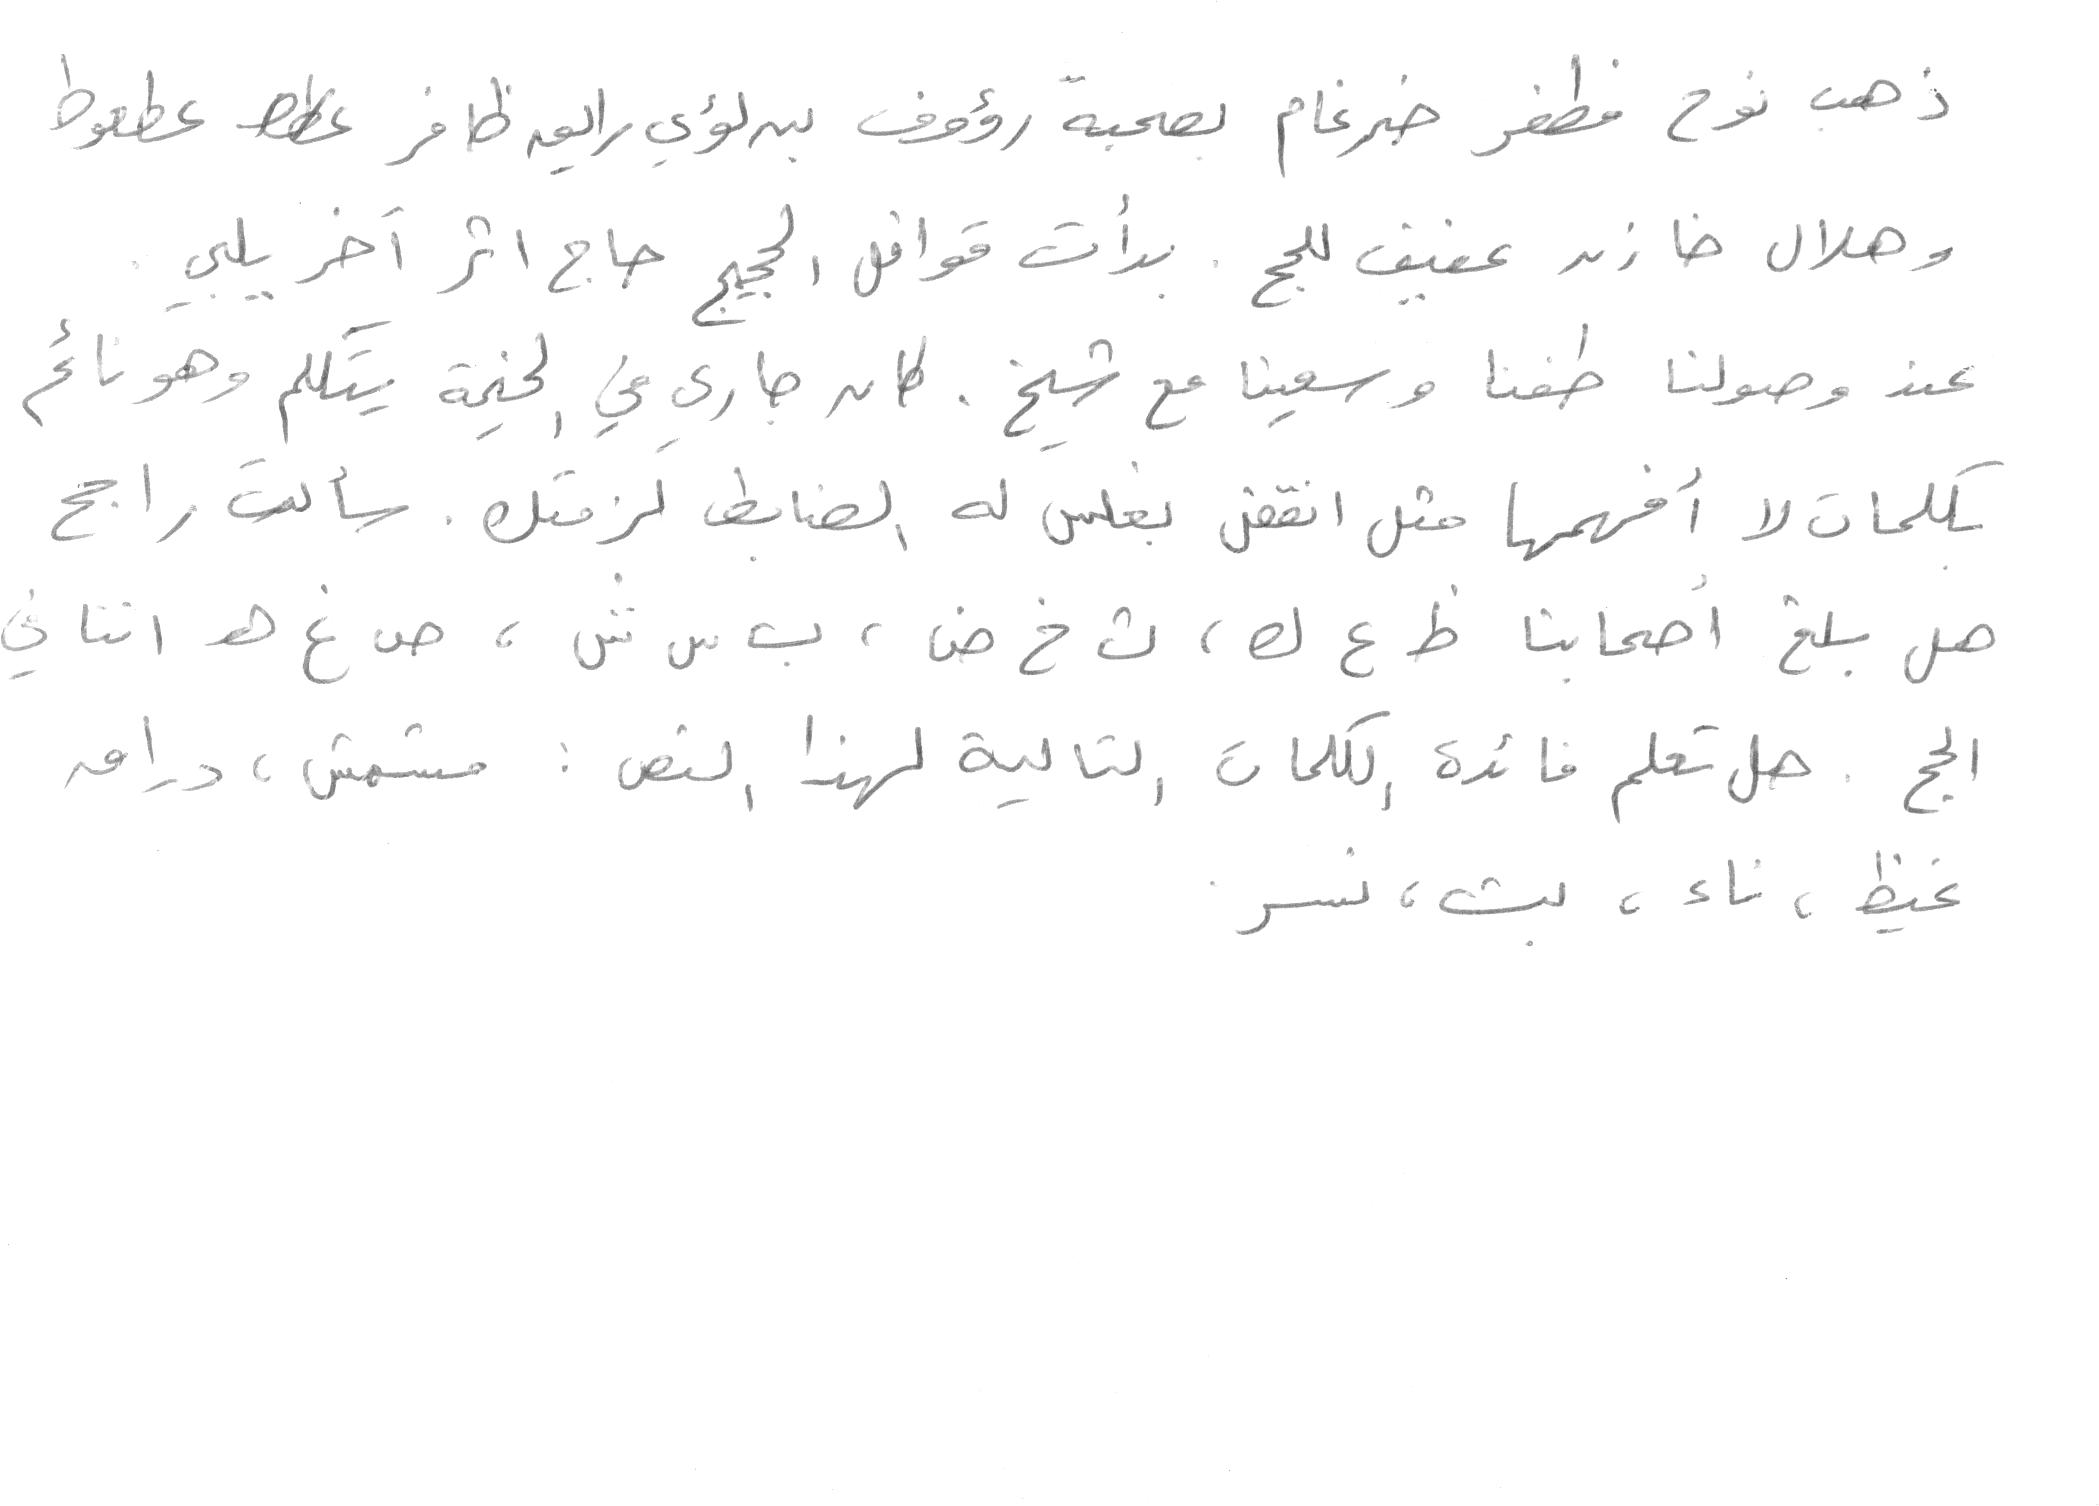 ذهب نوح مظفر ضرغام بصحبة رؤوف بن لؤي رايق ظافر عطعوط
وهلال خازن عفيف للحج . بدأت قوافل الحجيج حاج اثر آخر يلبي .
عند وصولنا طفنا وسعينا مع شيخ . كان جاري في الخيمة يتكلم وهو نائم
بكلمات لا أفهمها مثل انقض بغلس له الضابط لزمتك . سألت راجح
هل بلغ أصحابنا ظ ع ك ، ث خ ض ، ب س ش ، ص غ هـ اننا في
الحج . هل تعلم فائدة الكلمات التالية لهذا النص : مشمش ، دراق
غيظ ، ناء ، بث ، نسر .